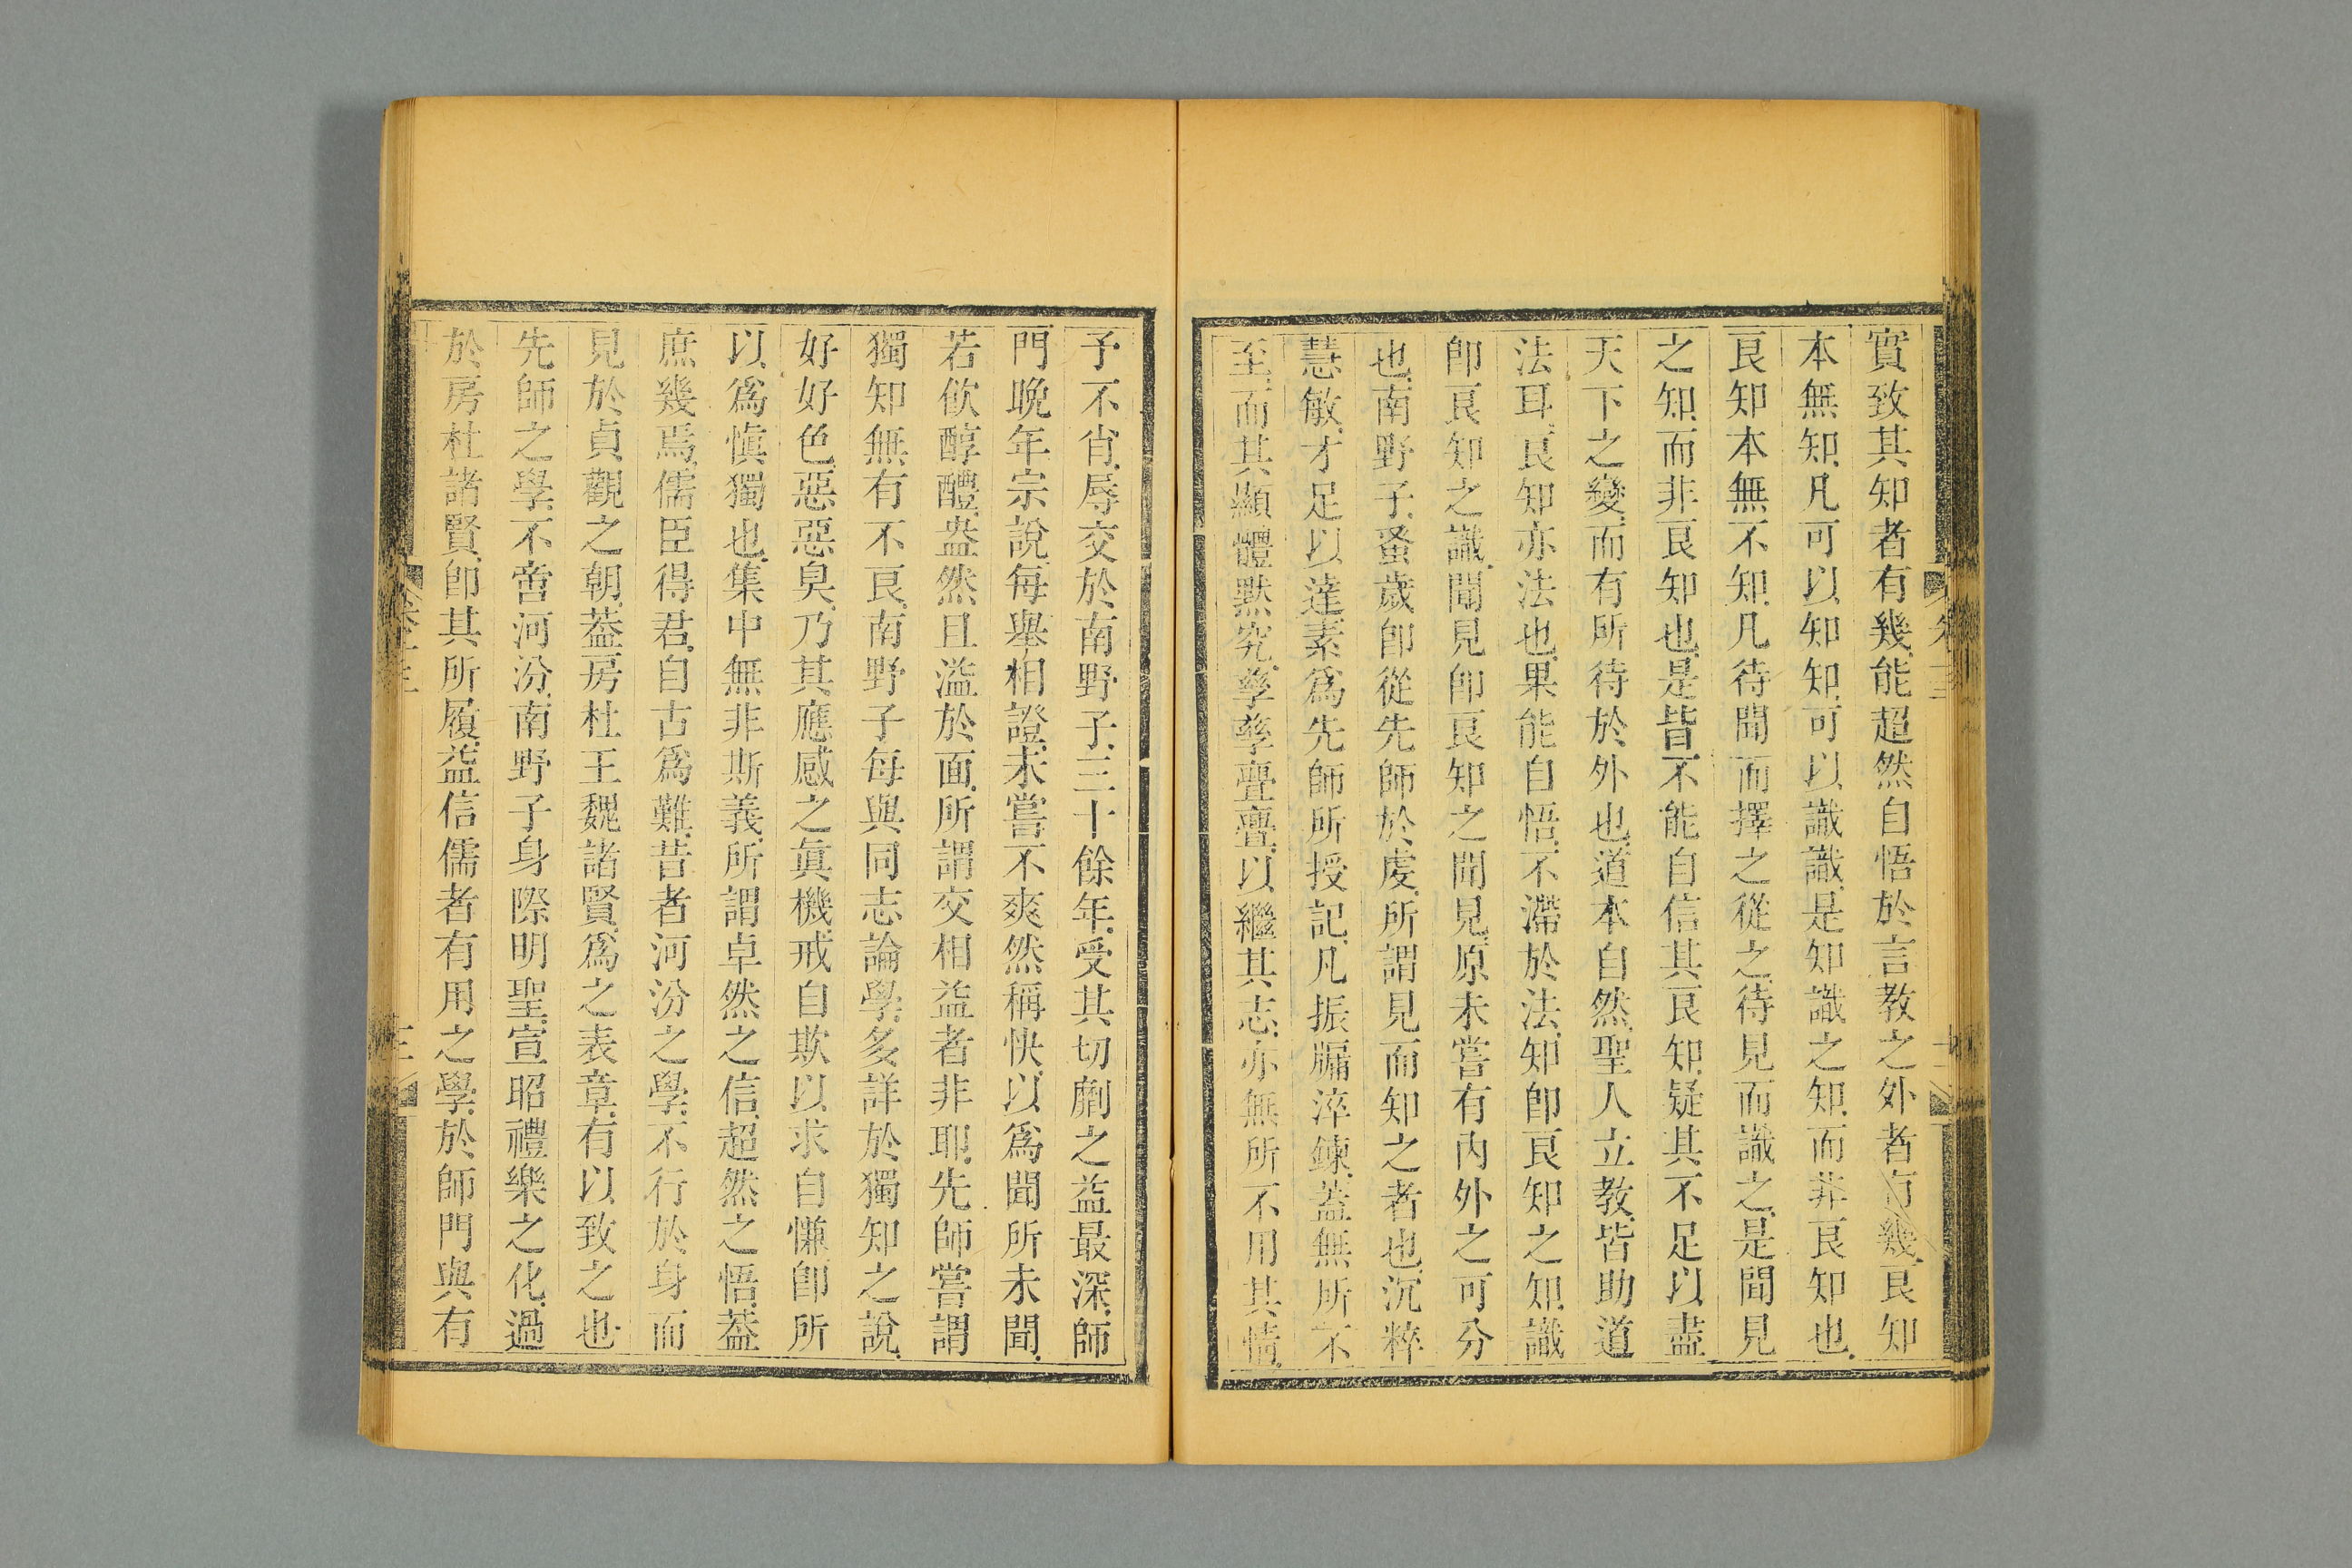 實致其知者有幾能超然自悟於言教之外者有幾良知
本無知凡可以知知可以識識是知識之知而非良知也
良知本無不知凡待聞而擇之從之待見而識之是聞見
之知而非良知也是皆不能自信其良知疑其不足以盡
天下之變而有所待於外也道本自然聖人立教皆助道
法耳良知亦法也果能自悟不滯於法知卽良知之知識
卽良知之識聞見卽良知之聞見原未嘗有內外之可分
也南野子蚤歲卽從先師於虔所謂見而知之者也沉粹
慧敏才足以達素爲先師所授記凡振牖淬鍊蓋無所不
至而其顯體默究孳孳亹亹以繼其志亦無所不用其情
予不肖辱交於南野子三十餘年受其切劘之益最深師
門晚年宗說每舉相證未嘗不爽然稱快以爲聞所未聞
若飮醇醴盎然且溢於面所謂交相益者非耶先師嘗謂
獨知無有不良南野子每與同志論學多詳於獨知之說
好好色惡惡臭乃其應感之眞機戒自欺以求自慊卽所
以爲愼獨也集中無非斯義所謂卓然之信超然之悟蓋
庶幾焉儒臣得君自古爲難昔者河汾之學不行於身而
見於貞觀之朝蓋房杜王魏諸賢爲之表章有以致之也
先師之學不啻河汾南野子身際明聖宣昭禮樂之化過
於房杜諸賢卽其所履益信儒者有用之學於師門與有